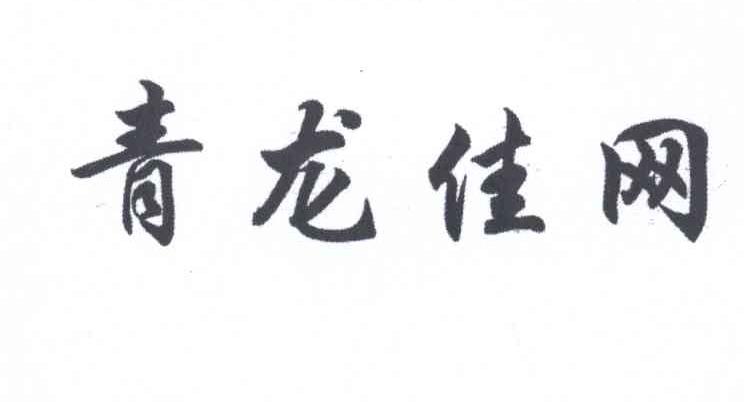 青龙佳网